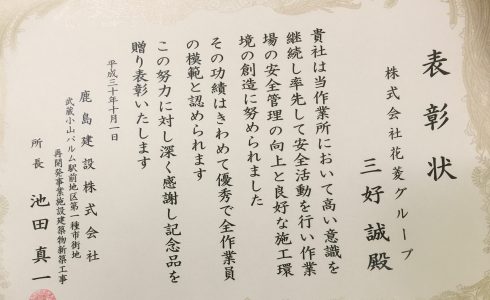 表彰状
株式会社花菱グループ
三好誠殿
貴社は当作業所において高い意識を
継続し率先して安全活動を行い作業
場の安全管理の向上と良好な施工環
境の創造に努められました
その功績はきわめて優秀で全作業員
の模範と認められます
この努力に対し深く感謝し記念品を
贈り表彰いたします
平成三十年十月一日
鹿島建設株式会社
武蔵小山パルム駅前地区第一種市街地
再開発事業施設建築物新築工事
所長 池田真一